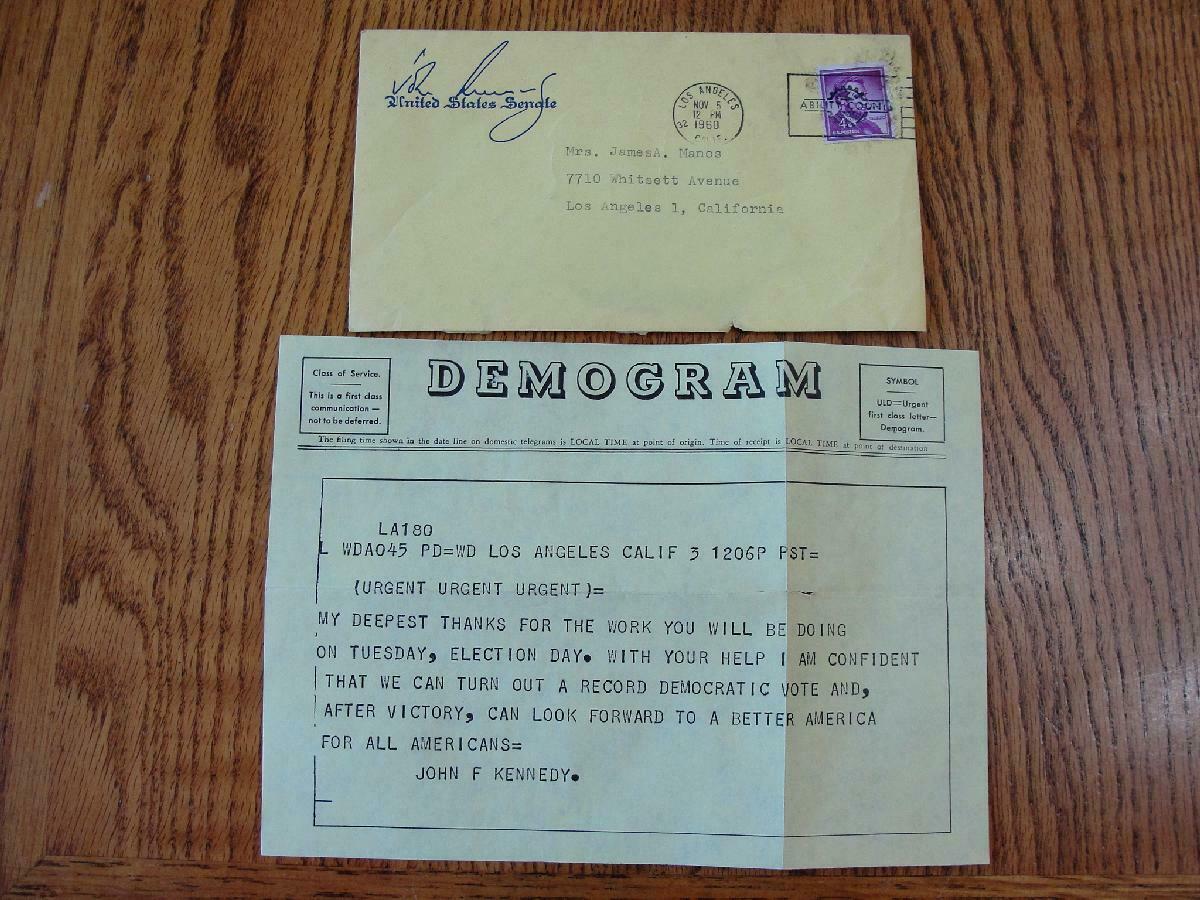 United States Senate
LOS ANGELES
NOV 5
12 PM
1960
32
CALIF.
ABILITY COUNTS
4¢
Mrs. JamesA. Manos
7710 Whitsett Avenue
Los Angeles 1, California
DEMOGRAM
Class of Service.
This is a first class
communication —
not to be deferred.
SYMBOL
ULD=Urgent
first class letter—
Demogram.
The filing time shown in the date line on domestic telegrams is LOCAL TIME at point of origin. Time of receipt is LOCAL TIME at point of destination
LA180
L WDA045 PD=WD LOS ANGELES CALIF 3 1206P PST=
(URGENT URGENT URGENT)=
MY DEEPEST THANKS FOR THE WORK YOU WILL BE DOING
ON TUESDAY, ELECTION DAY. WITH YOUR HELP I AM CONFIDENT
THAT WE CAN TURN OUT A RECORD DEMOCRATIC VOTE AND,
AFTER VICTORY, CAN LOOK FORWARD TO A BETTER AMERICA
FOR ALL AMERICANS=
JOHN F KENNEDY.